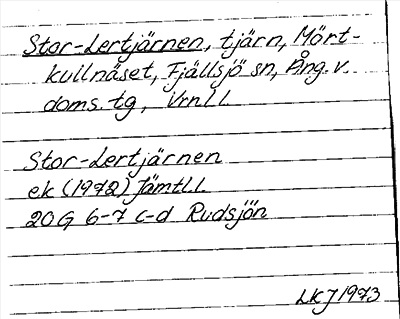 Stor-Lertjärnen, tjärn, Mört-
kullnäset, Fjällsjö sn, Ång. v.
doms. tg, Vrnl l.
Stor-Lertjärnen
ek (1972) Jämtl l.
20G 6-7 c-d Rudsjön
LKJ 1973